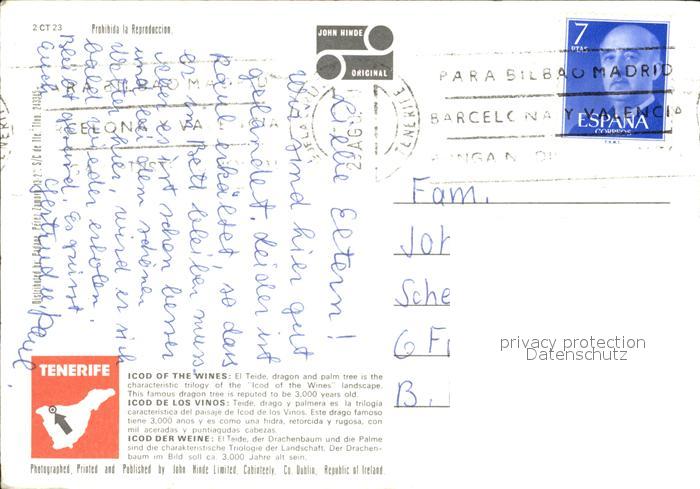 2 CT 23
Prohibida la Reproduccion.
JOHN HINDE
ORIGINAL
7
PTAS
ESPAÑA
CORREOS
PARA BILBAO MADRID
BARCELONA Y VALENCIA
TENERIFE
Liebe Eltern!
Wir sind hier gut
gelandet. Leider ist
Paul erkältet, so dass
er im Bett bleiben muss.
Aber es ist schon besser
und bei dem schönen
Wetter hier, wird er sich
bald wieder erholen.
Bleibt gesund. Es grüsst
Euch
Gertrud u. Paul.
Fam.
Joh
Sche
6 F
B.
privacy protection
Datenschutz
TENERIFE
ICOD OF THE WINES: El Teide, dragon and palm tree is the
characteristic trilogy of the "Icod of the Wines" landscape.
This famous dragon tree is reputed to be 3,000 years old.
ICOD DE LOS VINOS: Teide, drago y palmera es la trilogía
característica del paisaje de Icod de los Vinos. Este drago famoso
tiene 3,000 años y es como una hidra, retorcida y rugosa, con
mil aceradas y puntiagudas cabezas.
ICOD DER WEINE: El Teide, der Drachenbaum und die Palme
sind die charakteristische Triologie der Landschaft. Der Drachen-
baum im Bild soll ca. 3,000 Jahre alt sein.
Photographed, Printed and Published by John Hinde Limited, Cabinteely, Co. Dublin, Republic of Ireland.